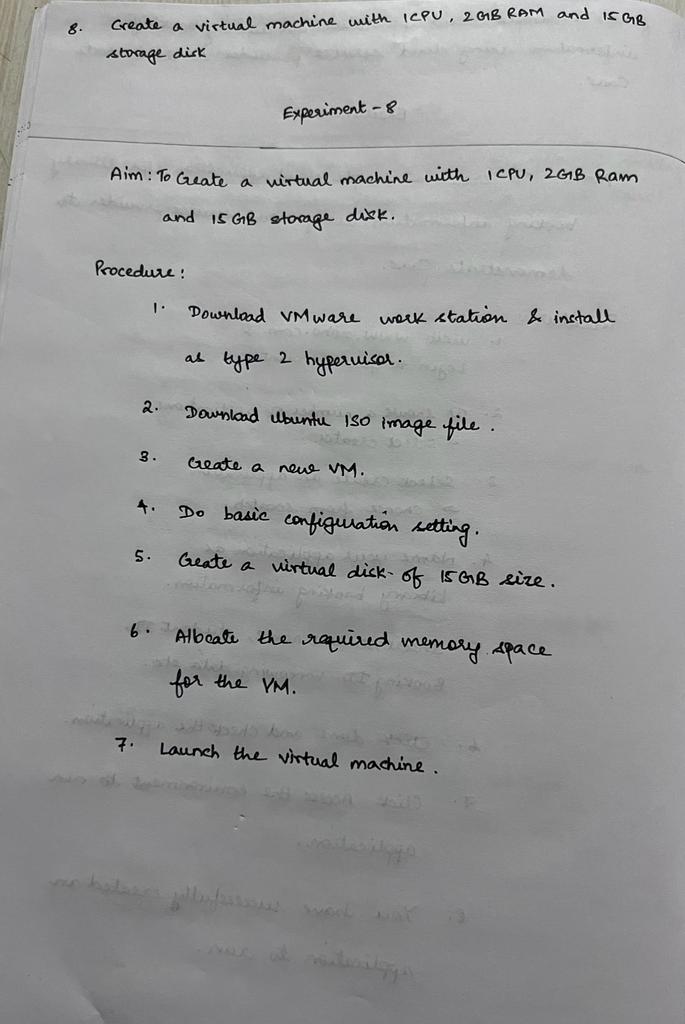 8. Create a virtual machine with 1CPU, 2GB RAM and 15GB
storage disk
Experiment - 8
Aim : To Create a virtual machine with 1CPU, 2GB Ram
and 15GB storage disk.
Procedure :
1. Download VMware work station & install
as type 2 hypervisor.
2. Download Ubuntu ISO image file.
3. Create a new VM.
4. Do basic configuration setting.
5. Create a virtual disk of 15GB size.
6. Allocate the required memory space
for the VM.
7. Launch the virtual machine.